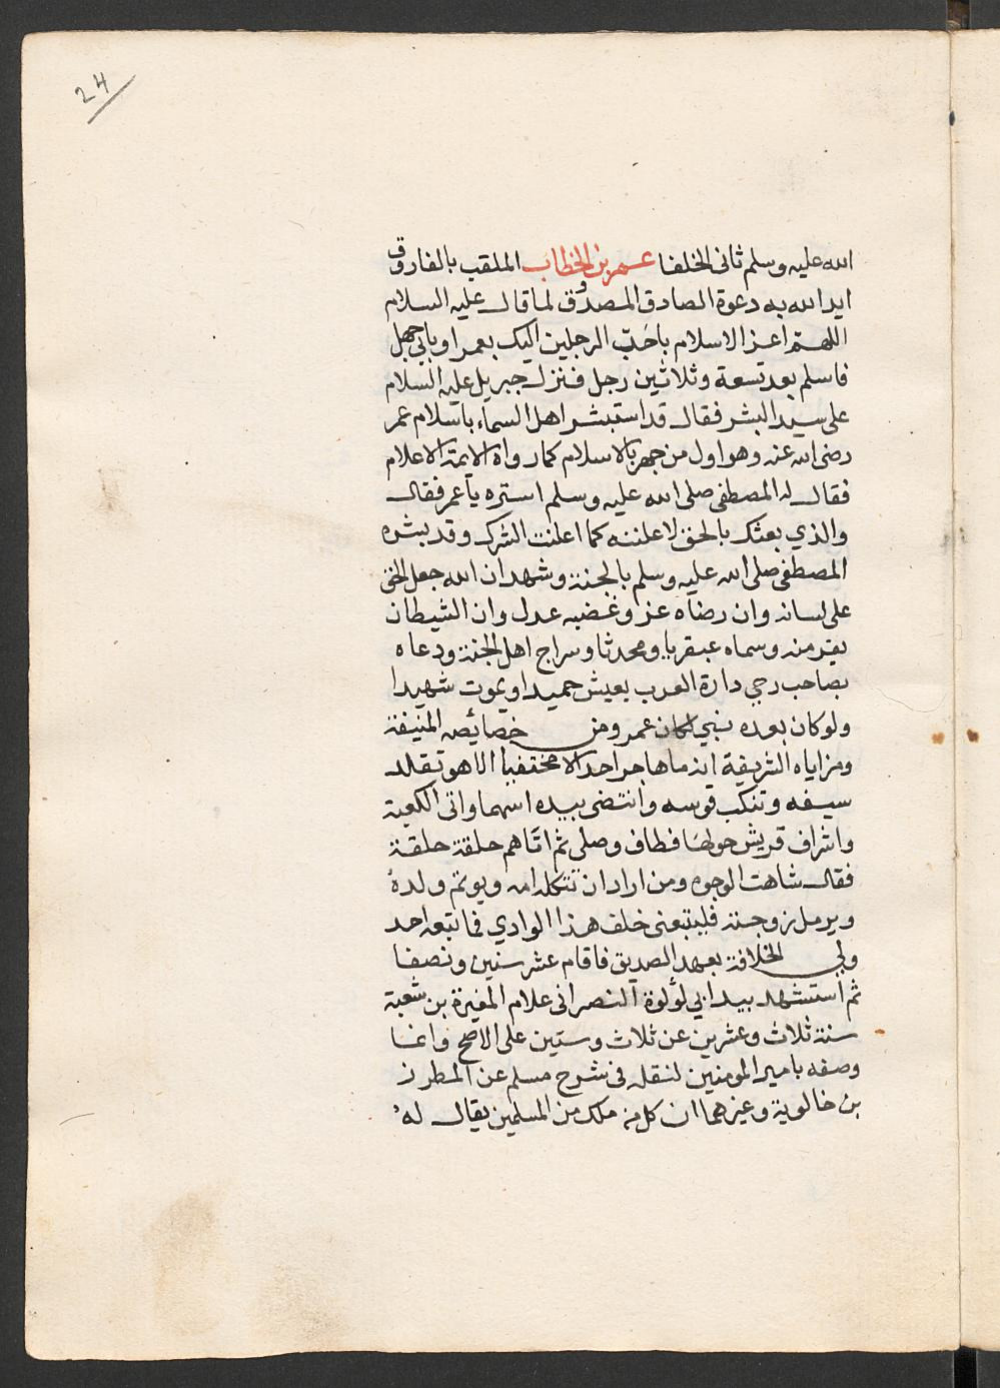 24
الله عليه وسلم ثانى الخلفا عمر بن الخطاب الملقب بالفاروق
ايد الله به دعوة الصادق المصدوق لما قال عليه السلام
اللهم اعز الاسلام باحب الرجلين اليك بعمر او بابي جهل
فاسلم بعد تسعة وثلاثين رجل فنزل جبريل عليه السلام
على سيد البشر فقال قد استبشر اهل السماء باسلام عمر
رضى الله عنه وهو اول من جهر بالاسلام كما رواه الايمة الاعلام
فقال له المصطفى صلى الله عليه وسلم استره يا عمر فقال
والذي بعثك بالحق لاعلننه كما اعلنت الشرك وقد بشره
المصطفى صلى الله عليه وسلم بالجنة وشهد ان الله جعل الحق
على لسانه وان رضاه عز وغضبه عدل وان الشيطان
يفر منه وسماه عبقريا ومحدثا وسراج اهل الجنة ودعاه
بصاحب رحي دارة العرب يعيش حميدا ويموت شهيدا
ولو كان بعده نبي لكان عمر ومن خصائصه المنيفة
ومزاياه الشريفة انه ما هاجر احد الا مختفيا الا هو تقلد
سيفه وتنكب قوسه وانتضى بيده اسهما واتى الكعبة
واشراف قريش حولها فطاف وصلى ثم اتاهم حلقة حلقة
فقال شاهت الوجوه ومن اراد ان تثكله امه ويوتم ولده
ويرمل زوجته فليتبعنى خلف هذا الوادي فما تبعه احد
ولي الخلافة بعهد الصديق فاقام عشر سنين ونصفا
ثم استشهد بيد ابي لؤلوة النصرانى غلام المغيرة بن شعبة
سنة ثلاث وعشرين عن ثلاث وستين على الاصح وانما
وصفه بامير المومنين لنقله فى شرح مسلم عن المطرز
بن خالوية وغيرهما ان كل من ملك من المسلمين يقال له